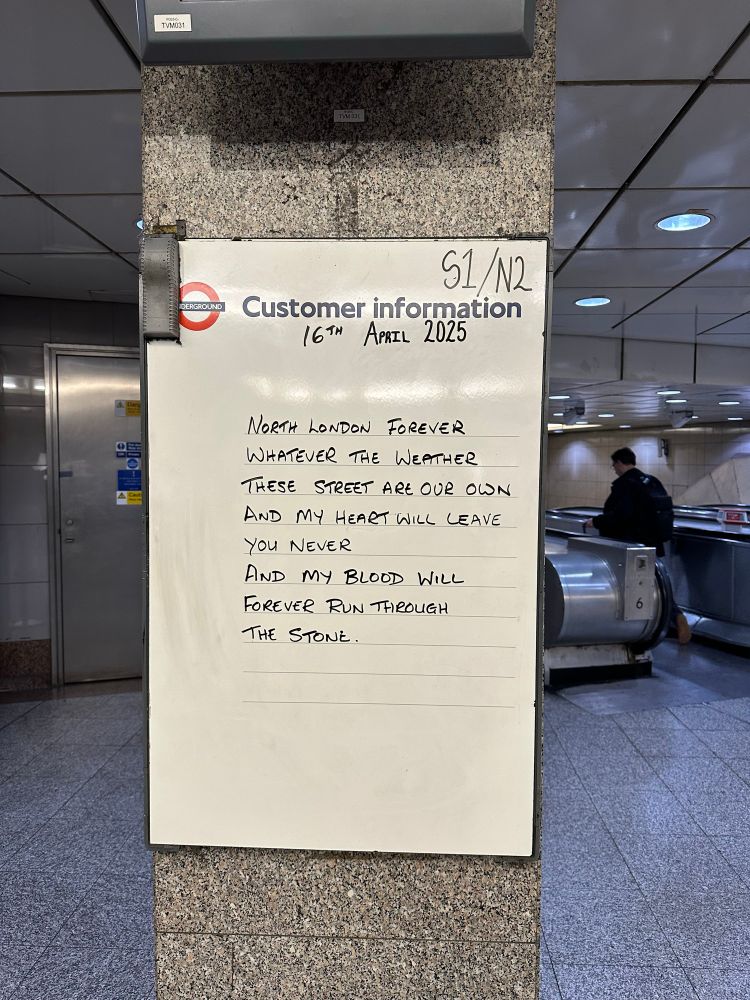 TVM031
TVM 031
S1/N2
UNDERGROUND
Customer information
16TH APRIL 2025
NORTH LONDON FOREVER
WHATEVER THE WEATHER
THESE STREET ARE OUR OWN
AND MY HEART WILL LEAVE
YOU NEVER
AND MY BLOOD WILL
FOREVER RUN THROUGH
THE STONE.
6